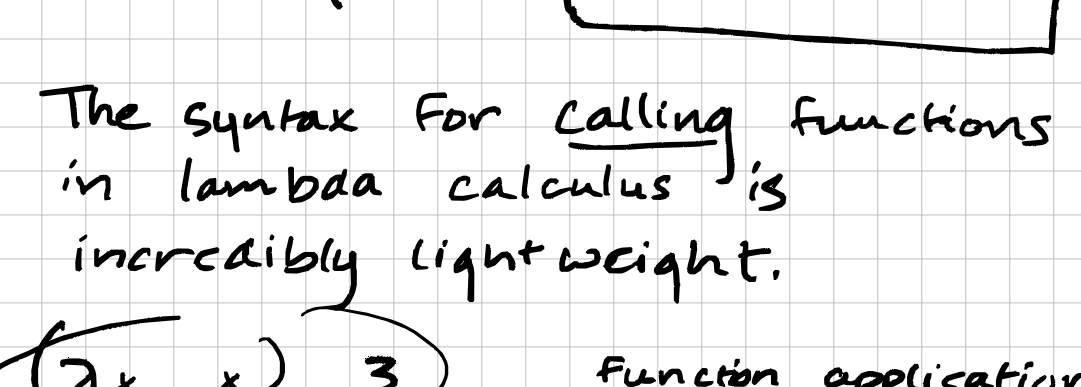 The syntax for calling functions
in lambda calculus is
incredibly lightweight.
(λx x) 3 Function application